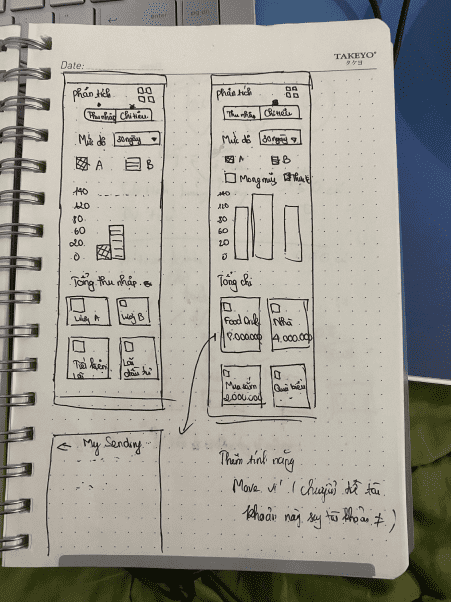 Date:
TAKEYO
phân tích
Thu nhập Chi tiêu
Mức độ 30 ngày
A B
140
120
80
60
20
0
Tổng thu nhập
Lương A Lương B
Tiết kiệm Lãi
lãi đầu tư
phân tích
Thu nhập Chi tiêu
Mức độ 30 ngày
A B
Mong muốn
140
110
80
60
20
0
Tổng chi
Food Nhà
8.000.000 4.000.000
Mua sắm Quà biếu
2.000.000
← My Sending
Thêm tính năng
Move ví (chuyển từ tài
khoản này sang tài khoản ≠)